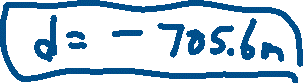 d = - 705.6m